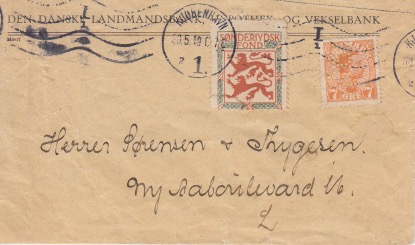 DEN DANSKE LANDMANDSBANK HYPOTHEK- OG VEKSELBANK
KJØBENHAVN
1.
SØNDERJYDSK
FOND
7 7
ØRE
Herrer Sørensen & Thygesen.
Ny Aaboulevard 16.
L